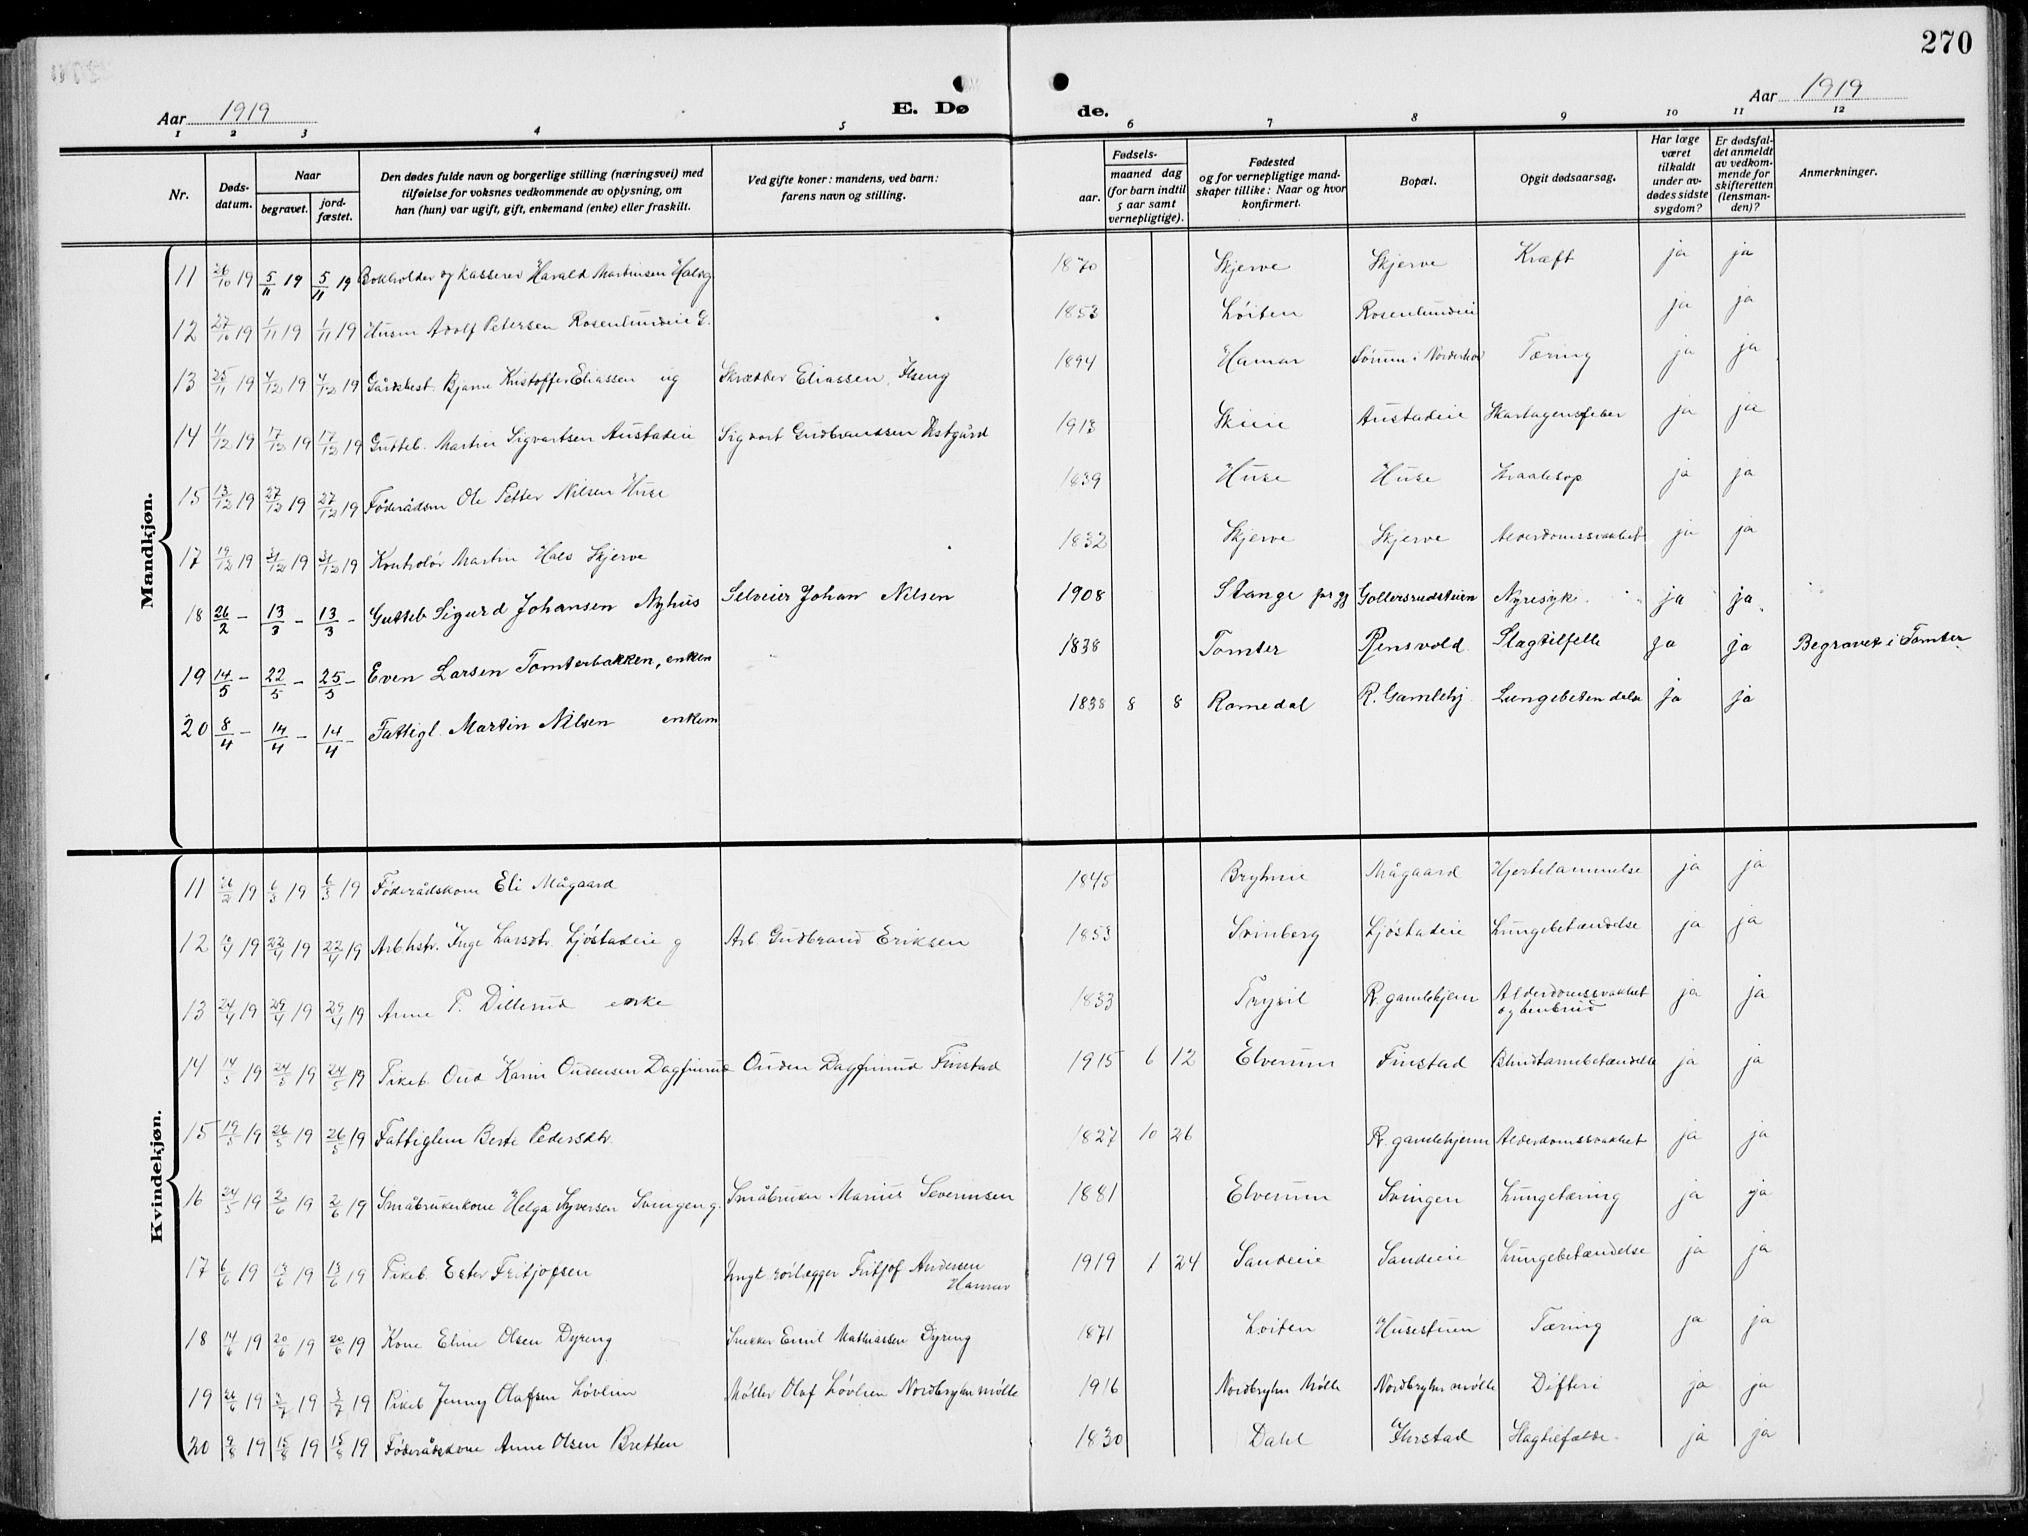 270
Aar 1919
E. Dø de.
Aar 1919
1 2 3 4 5 6 7 8 9 10 11 12
Nr.
Døds-
datum.
Naar
begravet.
jord-
fæstet.
Den dødes fulde navn og borgerlige stilling (næringsvei) med
tilføielse for voksnes vedkommende av oplysning, om
han (hun) var ugift, gift, enkemand (enke) eller fraskilt.
Ved gifte koner: mandens, ved barn:
farens navn og stilling.
Fødsels-
aar.
maaned dag
(for barn indtil
5 aar samt
vernepligtige).
Fødested
og for vernepligtige mand-
skaper tillike: Naar og hvor
konfirmert.
Bopæl.
Opgit dødsaarsag.
Har læge
været
tilkaldt
under av-
dødes sidste
sygdom?
Er dødsfal-
det anmeldt
av vedkom-
mende for
skifteretten
(lensman-
den)?
Anmerkninger.
Mandkjøn.
11 26/10 19 5/11 19 5/11 19 Bokholder og kasserer Harald Martinsen 1870 Skjerve Skjerve Kræft ja ja
12 27/10 19 1/11 19 1/11 19 Husm Adolf Petersen Rosenlundeie G. 1853 Løiten Rosenlundeie ja ja
13 25/11 19 4/12 19 4/12 19 Gårdbest. Bjarne Kristoffer Eliassen ug Skrædder Eliassen, Ilseng 1894 Hamar Sørum i Nordenhov Tæring ja ja
14 11/12 19 17/12 19 17/12 19 Gutteb. Martin Sigvartsen Austadeie Sigvart Gudbrandsen 1913 Skiie Austadeie Skarlagensfeber ja ja
15 13/12 19 27/12 19 27/12 19 Føderådsm Ole Petter Nilsen Huse 1839 Huse Huse ja ja
17 19/12 19 31/12 19 31/12 19 Kontrolør Martin Hals Skjerve 1832 Skjerve Skjerve Alderdomssvakhet ja ja
18 26/2 - 13/3 - 13/3 - Gutteb Sigurd Johansen Nyhus Selveier Johan Nilsen 1908 Stange Gollersrudsteien Nyresyke ja ja
19 14/5 - 22/5 - 25/5 - Even Larsen Tomterbakken, enkem 1838 Tomter Rensvold Slagtilfelle ja ja Begravet i Tomter.
20 8/4 - 14/4 - 14/4 - Fattigl. Martin Nilsen enkem 1838 8 8 Romedal R. Gamlehj. Lungebetendelse ja ja
Kvindekjøn.
11 26/2 19 6/3 19 6/3 19 Føderådskone Eli Mågaard 1845 Bryhnie Mågaard Hjertelammelse ja ja
12 19 22/4 19 22/4 19 Arb.hstr. Inge Larsdtr. Ljøstadeie g Arb. Gudbrand Eriksen 1853 Svinberg Ljøstadeie Lungebetændelse ja ja
13 24/4 19 29/4 19 29/4 19 Anne P. Dillerud enke 1833 Trysil R. gamlehjem Alderdomssvakhet
og benbrud ja ja
14 14/5 19 24/5 19 24/5 19 Pikeb. Oud Karin Oudensen Dagfinrud Ouden Dagfinrud Finstad 1915 6 12 Elverum Finstad Blindtarmbetændelse ja ja
15 19/5 19 26/5 19 26/5 19 Fattiglem Berte Pedersdtr. 1827 10 26 R. gamlehjem Alderdomssvakhet ja ja
16 24/5 19 2/6 19 2/6 19 Småbrukerkone Helga Syversen Svingen g. Småbruker Marius Severinsen 1881 Elverum Svingen Lungetæring ja ja
17 6/6 19 13/6 19 13/6 19 Pikeb. Ester Fritjofsen Ungk rørlægger Fritjof Andersen
Hamar 1919 1 24 Sandeie Sandeie Lungebetændelse ja ja
18 14/6 19 20/6 19 20/6 19 Kone Eline Olsen Dyreng Snekker Emil Mathiassen Dyreng 1871 Løiten Husestuen Tæring ja ja
19 26/6 19 3/7 19 3/7 19 Pikeb Jenny Olafsen Løvlien Møller Olaf Løvlien Nordbryhn mølle 1916 Nordbryhn Mølle Nordbryhn mølle Difteri ja ja
20 9/8 19 15/8 19 15/8 19 Føderådskone Anne Olsen Bretten 1830 Dahl Slagtilfælde. ja ja